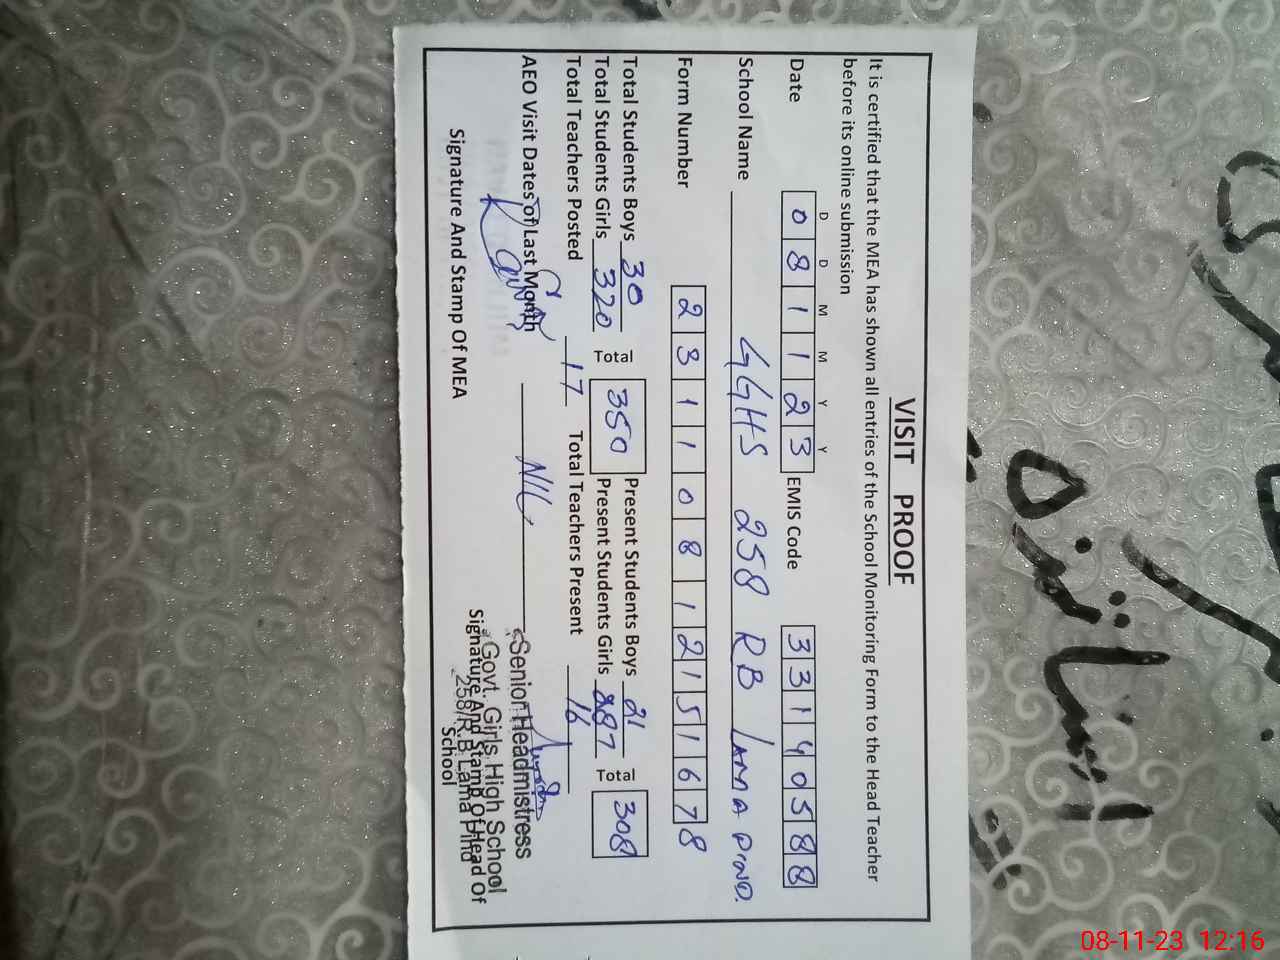 VISIT PROOF
It is certified that the MEA has shown all entries of the School Monitoring Form to the Head Teacher
before its online submission
D D M M Y Y
Date 0 8 1 1 2 3 EMIS Code 3 3 1 4 0 5 8 8
School Name GGHS 258 RB LAMA PIND.
Form Number 2 3 1 1 0 8 1 2 1 5 1 6 7 8
Total Students Boys 30 Total 350 Present Students Boys 21 Total 308
Total Students Girls 320 Present Students Girls 287
Total Teachers Posted 17 Total Teachers Present 16
AEO Visit Dates of Last Month NIL
Senior Headmistress
Govt. Girls High School
258/R.B Lama Pind
Signature And Stamp Of MEA
Signature And Stamp Of Head Of
School
08-11-23 12:16